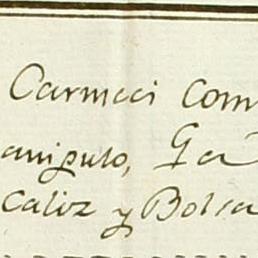 Carmeci com
anipulo, Ga
caliz y Bolsa